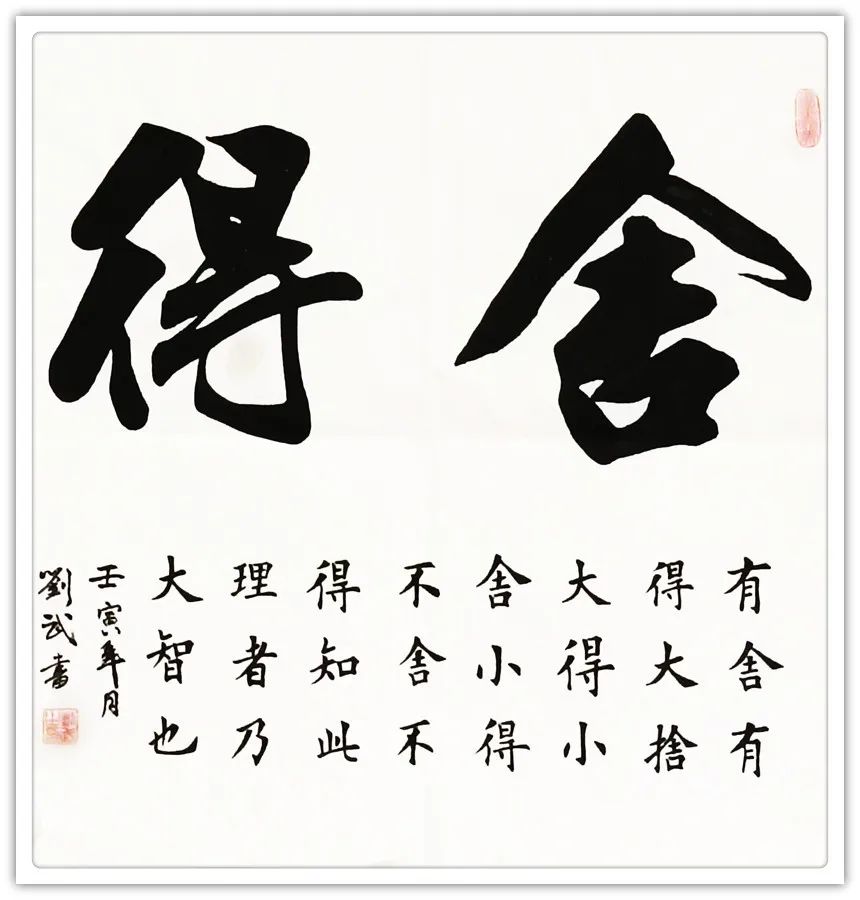 舍得
有舍有
得大捨
大得小
舍小得
不舍不
得知此
理者乃
大智也
壬寅年月
劉武書